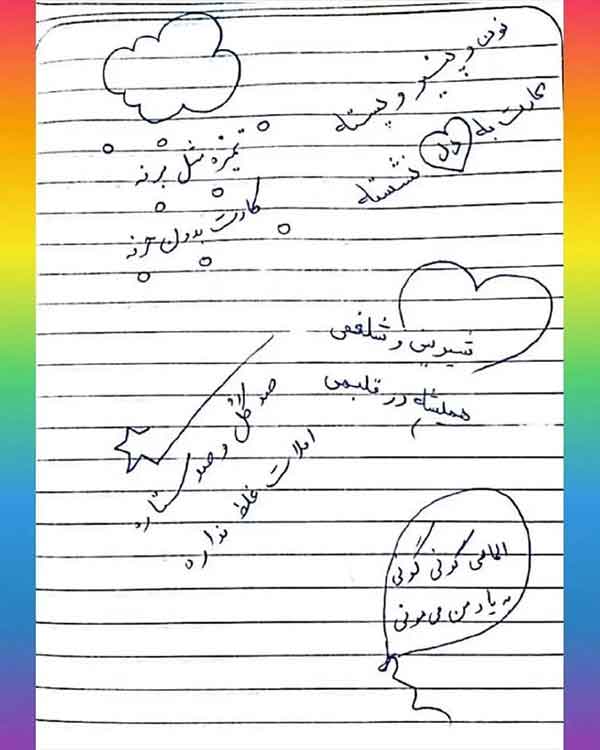 نون و پنیر و پسته
کارت به دل نشسته
تمیزه مثل برنه
کارت بدون حرفه
شیرین و شلغمی
همیشه در قلبمی
صد گل و صد ستاره
املات غلط نداره
الماسی گونی گونی
به یاد من می مونی